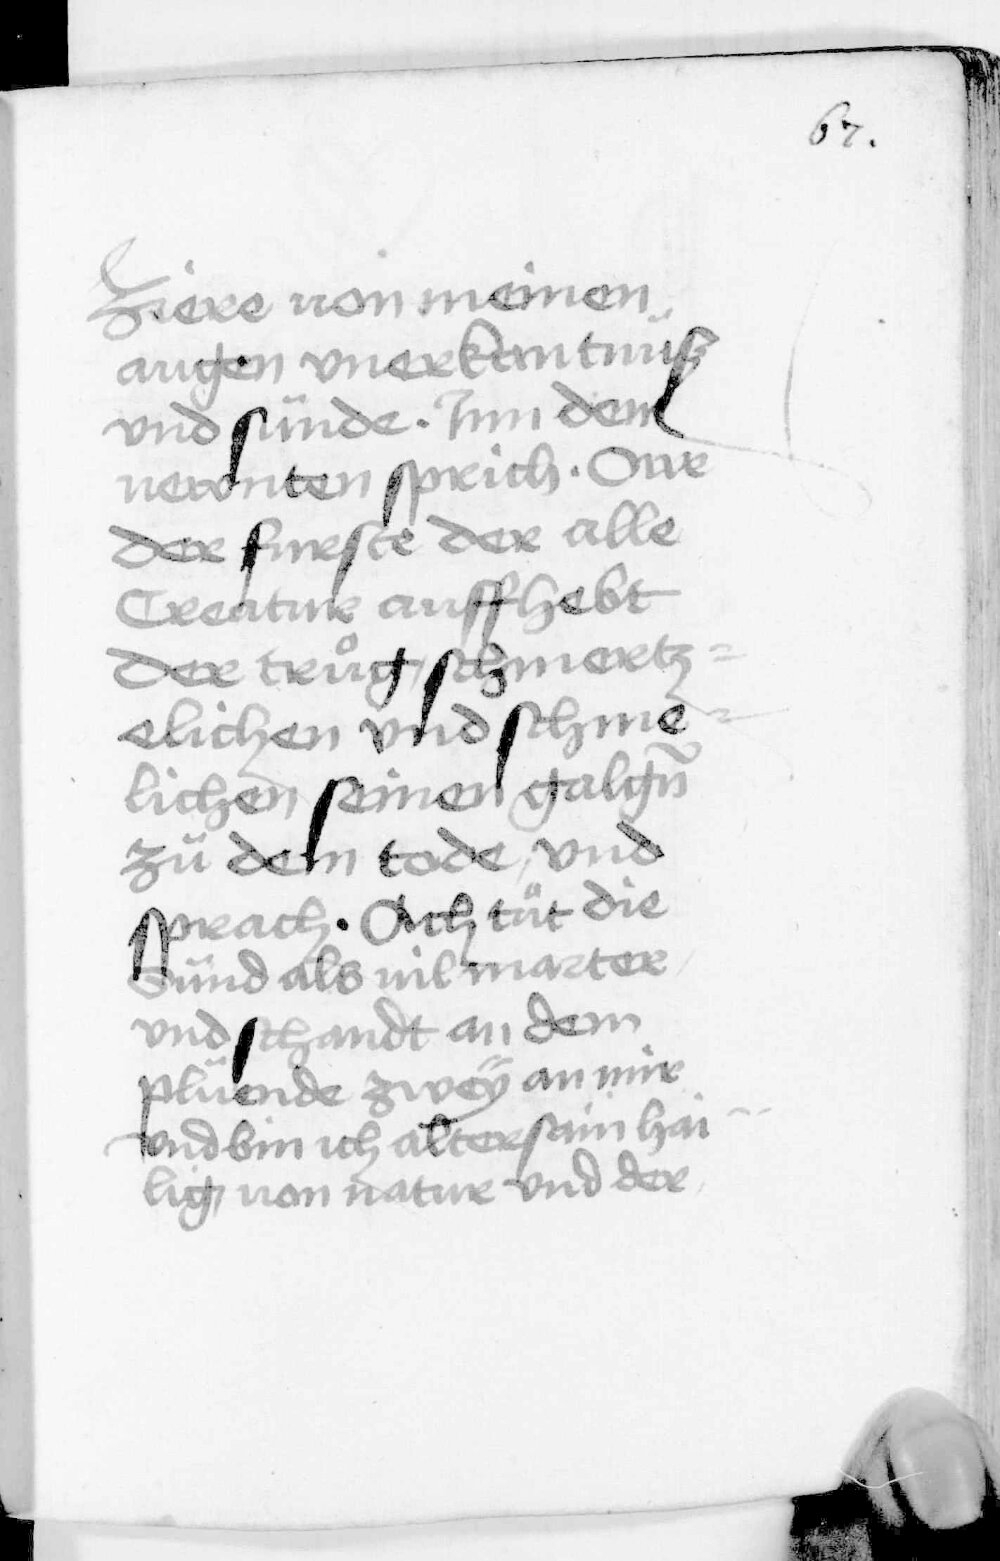 67.
Ziere von meinen
augen vnerkantnüß
vnd sünde. Inn dem
nervnten sprich. Our
der furste der alle
Creatur auffhebt
der trůg, schmertz=
elichen vnd schme=
lichen seinen galgñ
zü dem tode, vnd
sprach. Ach tüt die
Sünd als vil marter
vnd schandt an dem
plüende zweÿ an mir
vnd bin ich alter sain hai
lig, von natur vnd der